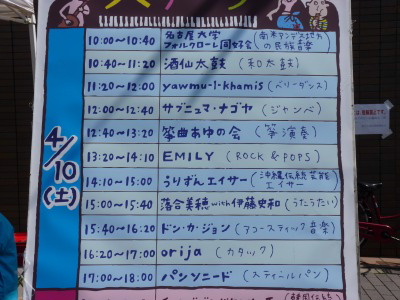 4/10(土)
10:00~10:40 名古屋大学 フォルクローレ同好会 (南米アンデス地方の民族音楽)
10:40~11:20 酒仙太鼓 (和太鼓)
11:20~12:00 yawmu-l-khamis (ベリーダンス)
12:00~12:40 サブニュマ・ナゴヤ (ジャンベ)
12:40~13:20 箏曲あゆの会 (箏演奏)
13:20~14:10 EMILY (ROCK & POPS)
14:10~15:00 うりずんエイサー (沖縄伝統芸能エイサー)
15:00~15:40 落合美穂with伊藤史和 (うたうたい)
15:40~16:20 ドン・カ・ジョン (アコースティック音楽)
16:20~17:00 orija (カタック)
17:00~18:00 パンソニード (スティールパン)